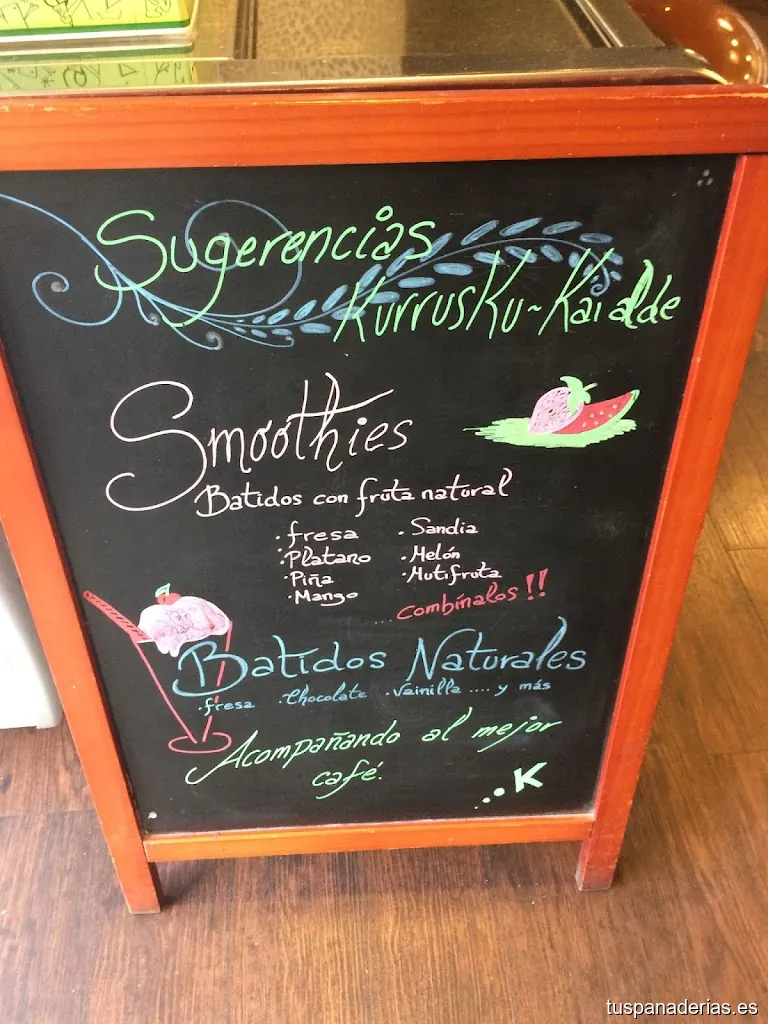 Sugerencias
Kurrusku~Kaialde
Smoothies
Batidos con fruta natural
·fresa ·Sandia
·Platano ·Melón
·Piña ·Mutifruta
·Mango
...combínalos!!
Batidos Naturales
·fresa ·Chocolate ·Vainilla .... y más
Acompañando al mejor
café.
...K
tuspanaderias.es